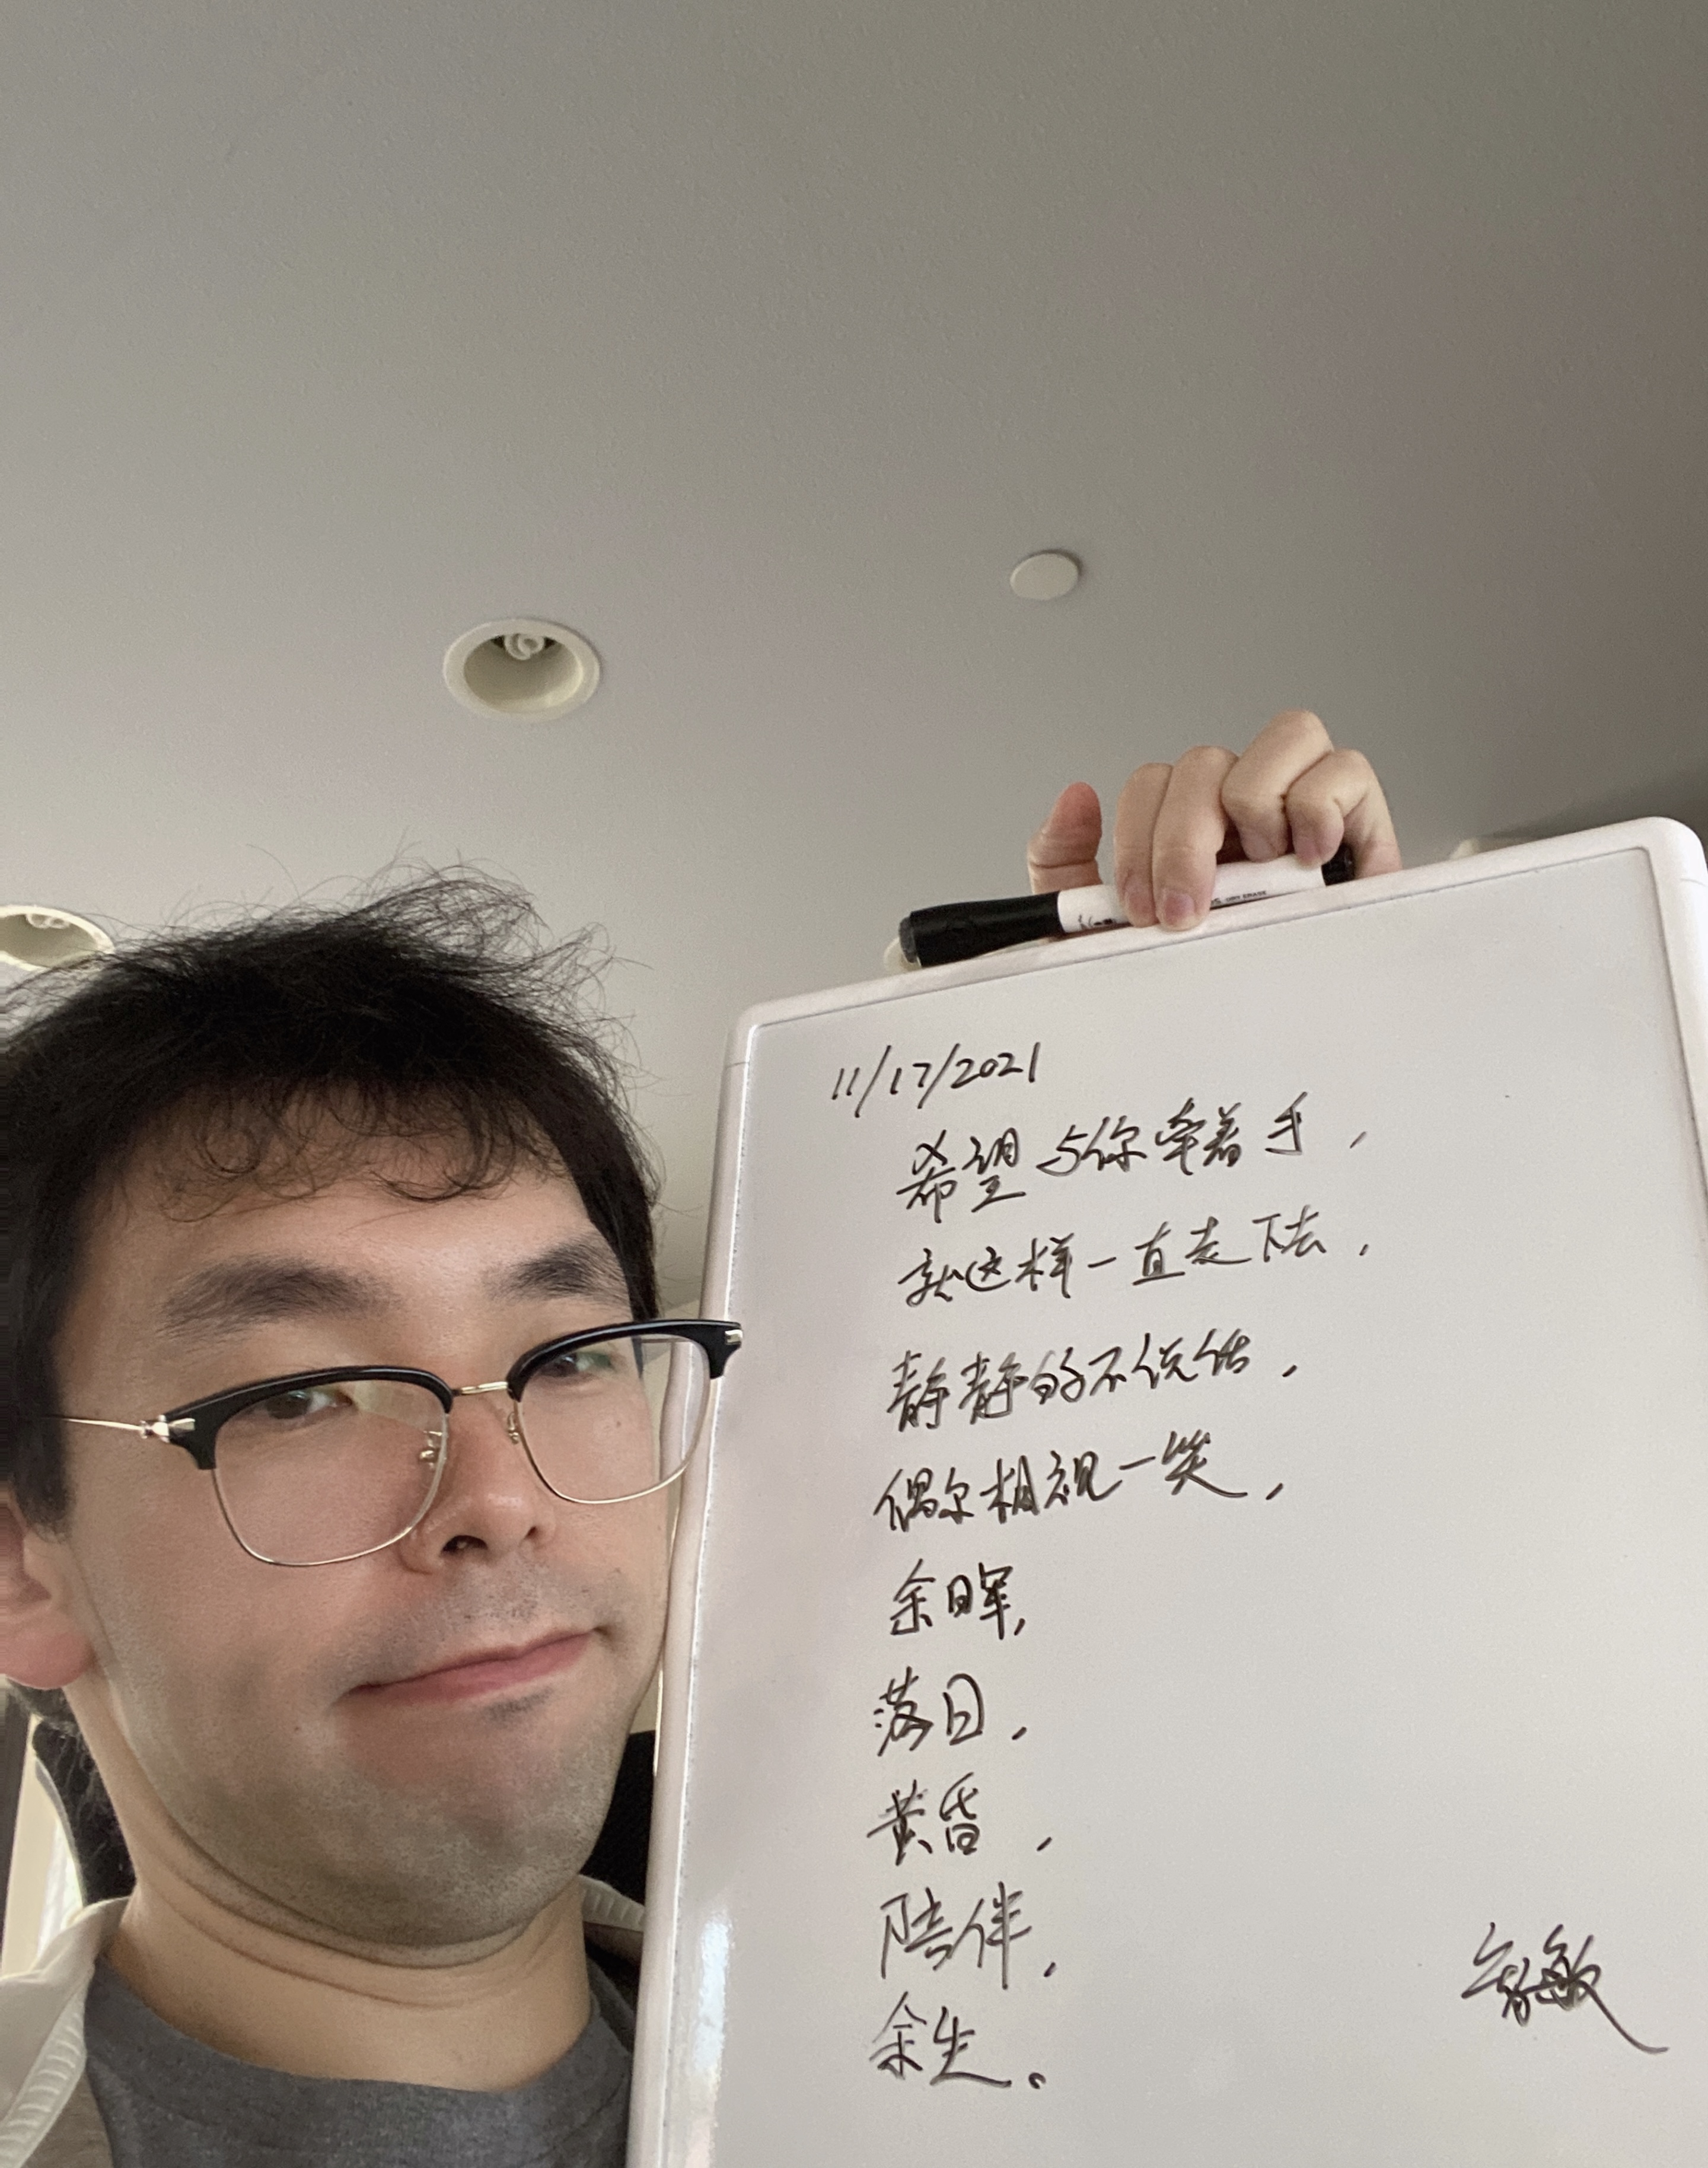 11/17/2021
希望与你牵着手，
就这样一直走下去，
静静的不说话，
偶尔相视一笑，
余晖，
落日，
黄昏，
陪伴，
余生。